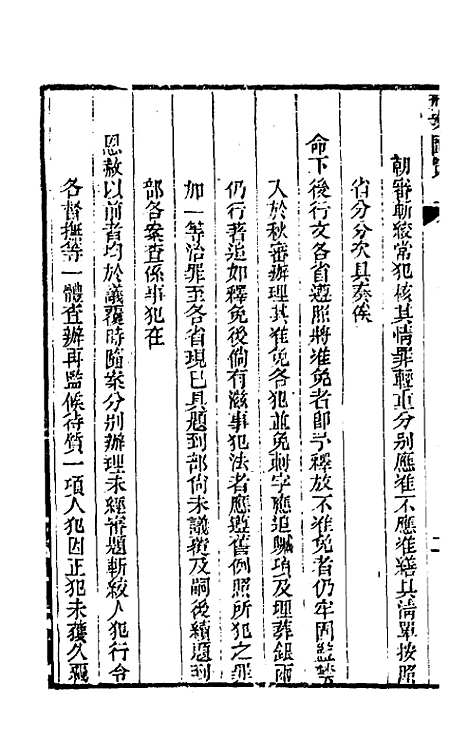 朝審斬絞常犯核其情罪輕重分别應准不應准繕具清單按照
省分分次具奏俟
命下後行文各省遵照將准免者即予釋放不准免者仍牢固監禁
入於秋審辦理其准免各犯並免刺字應追贓項及埋葬銀兩
仍行著追如釋免後倘有滋事犯法者應遵舊例照所犯之罪
加一等治罪至各省現已具題到部尚未議覆及嗣後續題到
部各案查係事犯在
恩赦以前者均於議覆時隨案分别辦理未經審題斬絞人犯行令
各督撫等一體查辦再監候待質一項人犯因正犯未獲久羈